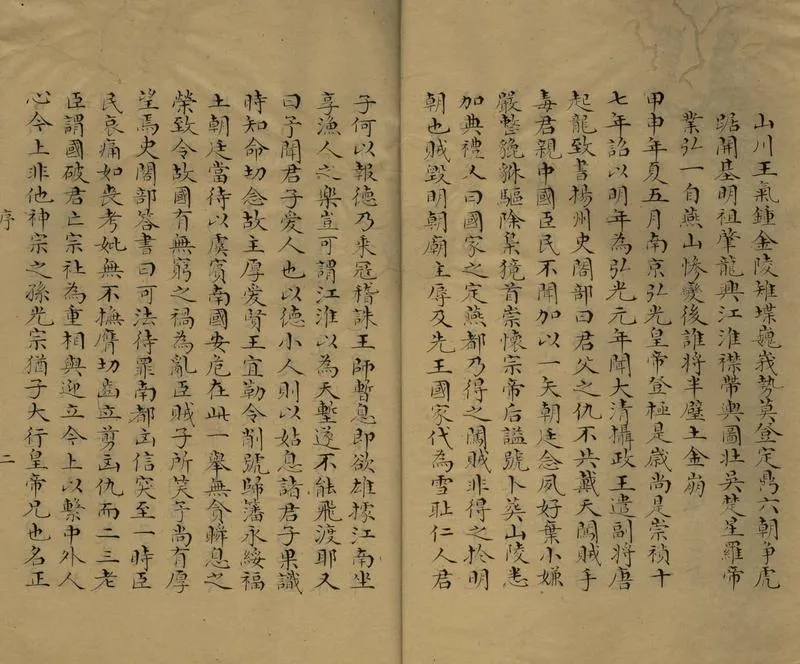 山川王氣鍾金陵雉堞巍峩勢莫登定鼎六朝爭虎
踞開基明祖肇龍興江淮襟帶輿圖壯吳楚星羅帝
業弘一自燕山慘變後誰將半壁土金崩
甲申年夏五月南京弘光皇帝登極是歲尚是崇禎十
七年詔以明年為弘光元年聞大清攝政王遣副將唐
起龍致書揚州史閣部曰君父之仇不共戴天闖賊手
毒君親中國臣民不聞加以一矢朝廷念夙好棄小嫌
嚴整貔貅驅除梟獍首崇懷宗帝后謚號卜葬山陵悉
加典禮人曰國家之定燕都乃得之闖賊非得之於明
朝也賊毀明朝廟主辱及先王國家代為雪耻仁人君
子何以報德乃乘冦稽誅王師暫息即欲雄據江南坐
享漁人之樂豈可謂江淮以為天塹遂不能飛渡耶又
曰予聞君子愛人也以德小人則以姑息諸君子果識
時知命切念故主厚爱賢王宜勒令削號歸藩永綏福
土朝廷當待以虞賓南國安危在此一舉無貪瞬息之
榮致令故國有無窮之禍為亂臣賊子所笑予尚有厚
望焉史閣部答書曰可法待罪南都函信突至一時臣
民哀痛如喪考妣無不撫膺切齒立剪函仇而二三老
臣謂國破君亡宗社為重相與迎立今上以繫中外人
心今上非他神宗之孫光宗猶子大行皇帝兄也名正
序
二